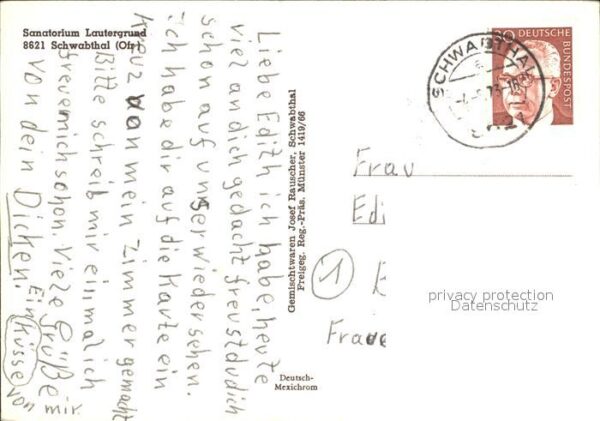 Sanatorium Lautergrund
8621 Schwabthal (Ofr)
Liebe Edith ich habe heute
viel an dich gedacht freust du dich
schon auf unser wiedersehen.
Ich habe dir auf die Karte ein
Kreuz von mein Zimmer gemacht
Bitte schreib mir ein mal ich
freue mich schon. Viele Grüße
von dein Dicken. Ein Küsse von mir.
Gemischtwaren Josef Rauscher, Schwabthal
Freigeg. Reg.-Präs. Münster 1419/66
Deutsch-
Mexichrom
DEUTSCHE
BUNDESPOST
SCHWABTHAL
Frau
Edi
1
privacy protection
Datenschutz